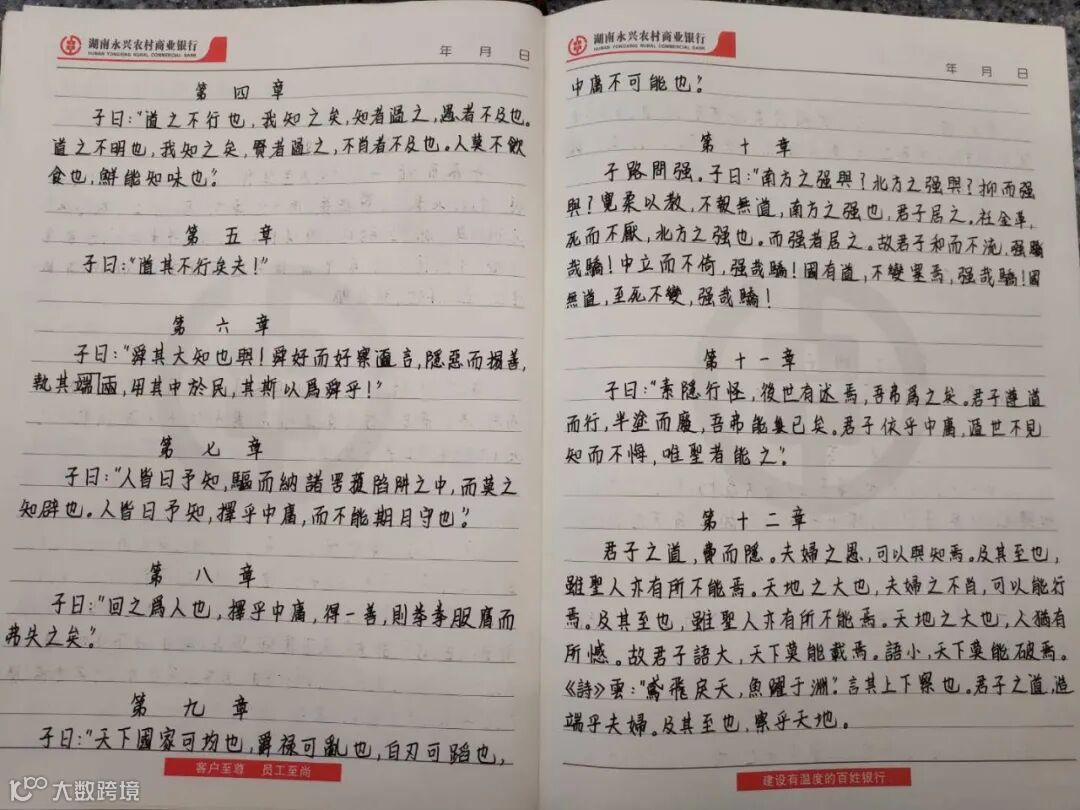 湖南永兴农村商业银行
HUNAN YONGXING RURAL COMMERCIAL BANK
年 月 日
第四章
子曰:“道之不行也,我知之矣,知者過之,愚者不及也。
道之不明也,我知之矣,賢者過之,不肖者不及也。人莫不飲
食也,鮮能知味也。”
第五章
子曰:“道其不行矣夫!”
第六章
子曰:“舜其大知也與!舜好而好察邇言,隱惡而揚善,
執其端兩,用其中於民,其斯以爲舜乎!”
第七章
子曰:“人皆曰予知,驅而納諸罟擭陷阱之中,而莫之
知辟也。人皆曰予知,擇乎中庸,而不能期月守也。”
第八章
子曰:“回之爲人也,擇乎中庸,得一善,則拳拳服膺而
弗失之矣。”
第九章
子曰:“天下國家可均也,爵禄可亂也,白刃可蹈也,
客户至尊 员工至尚
湖南永兴农村商业银行
HUNAN YONGXING RURAL COMMERCIAL BANK
年 月 日
中庸不可能也。”
第十章
子路問强。子曰:“南方之强與?北方之强與?抑而强
與?寬柔以教,不報無道,南方之强也,君子居之。衽金革,
死而不厭,北方之强也。而强者居之。故君子和而不流,强
哉驕!中立而不倚,强哉驕!國有道,不變塞焉,强哉驕!國
無道,至死不變,强哉驕!
第十一章
子曰:“素隱行怪,後世有述焉,吾弗爲之矣。君子遵道
而行,半塗而廢,吾弗能已矣。君子依乎中庸,遁世不見
知而不悔,唯聖者能之。”
第十二章
君子之道,費而隱。夫婦之愚,可以與知焉。及其至也,
雖聖人亦有所不能焉。天地之大也,夫婦之不肖,可以能行
焉。及其至也,雖聖人亦有所不能焉。天地之大也,人猶有
所憾。故君子語大,天下莫能載焉。語小,天下莫能破焉。
《詩》雲:“鳶飛戾天,魚躍于淵。”言其上下察也。君子之道,造
端乎夫婦。及其至也,察乎天地。
建设有温度的百姓银行
大数跨境